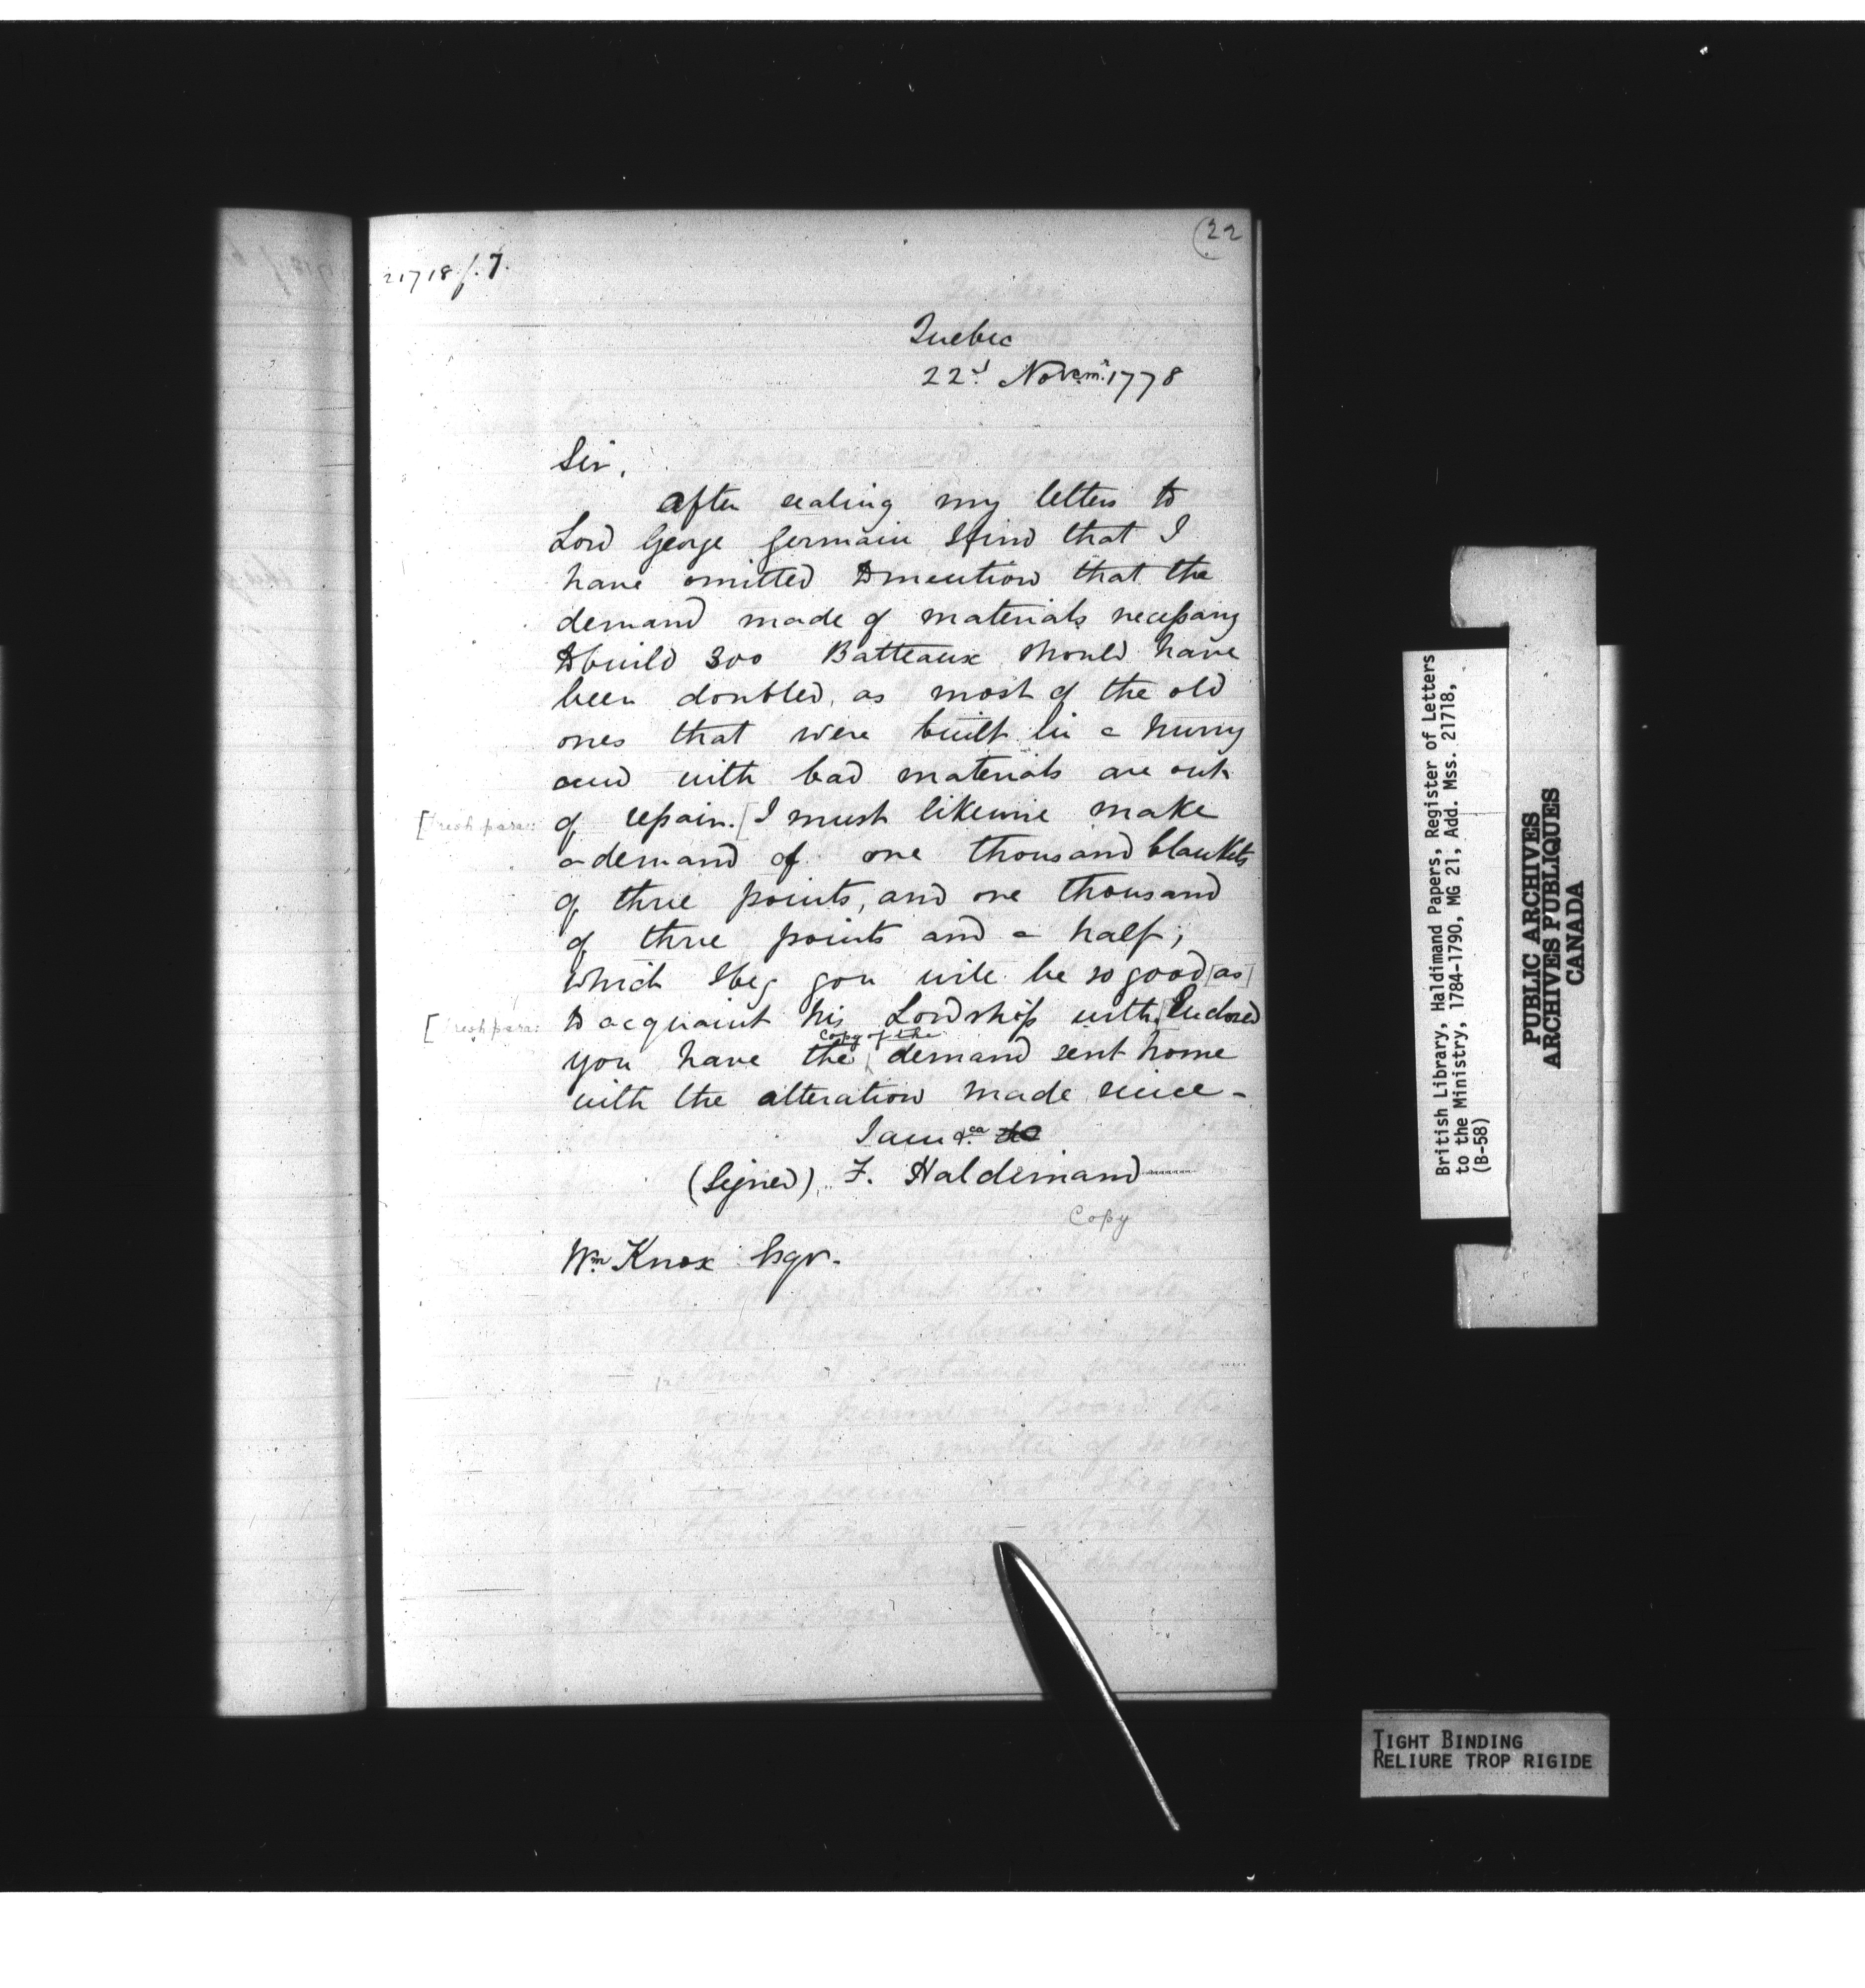 (22
21718 f. 7.
Quebec
22d Novemr. 1778
Sir,
After sealing my letters to
Lord George Germain I find that I
have omitted to mention that the
demand made of materials necessary
to build 300 Batteaux should have
been doubled, as most of the old
ones that were built in a hurry
and with bad materials are out
[fresh para: of repair. [I must likewise make
a demand of one thousand blankets
of three points, and one thousand
of three points and a half;
which I beg you will be so good [as]
[fresh para: to acquaint his Lordship with. [Enclosed
copy of the
you have the demand sent home
with the alteration made since -
I am &ca
(Signed) F. Haldimand
Copy
Wm Knox Esqr.
British Library, Haldimand Papers, Register of Letters
to the Ministry, 1784-1790, MG 21, Add. Mss. 21718,
(B-58)
PUBLIC ARCHIVES
ARCHIVES PUBLIQUES
CANADA
TIGHT BINDING
RELIURE TROP RIGIDE